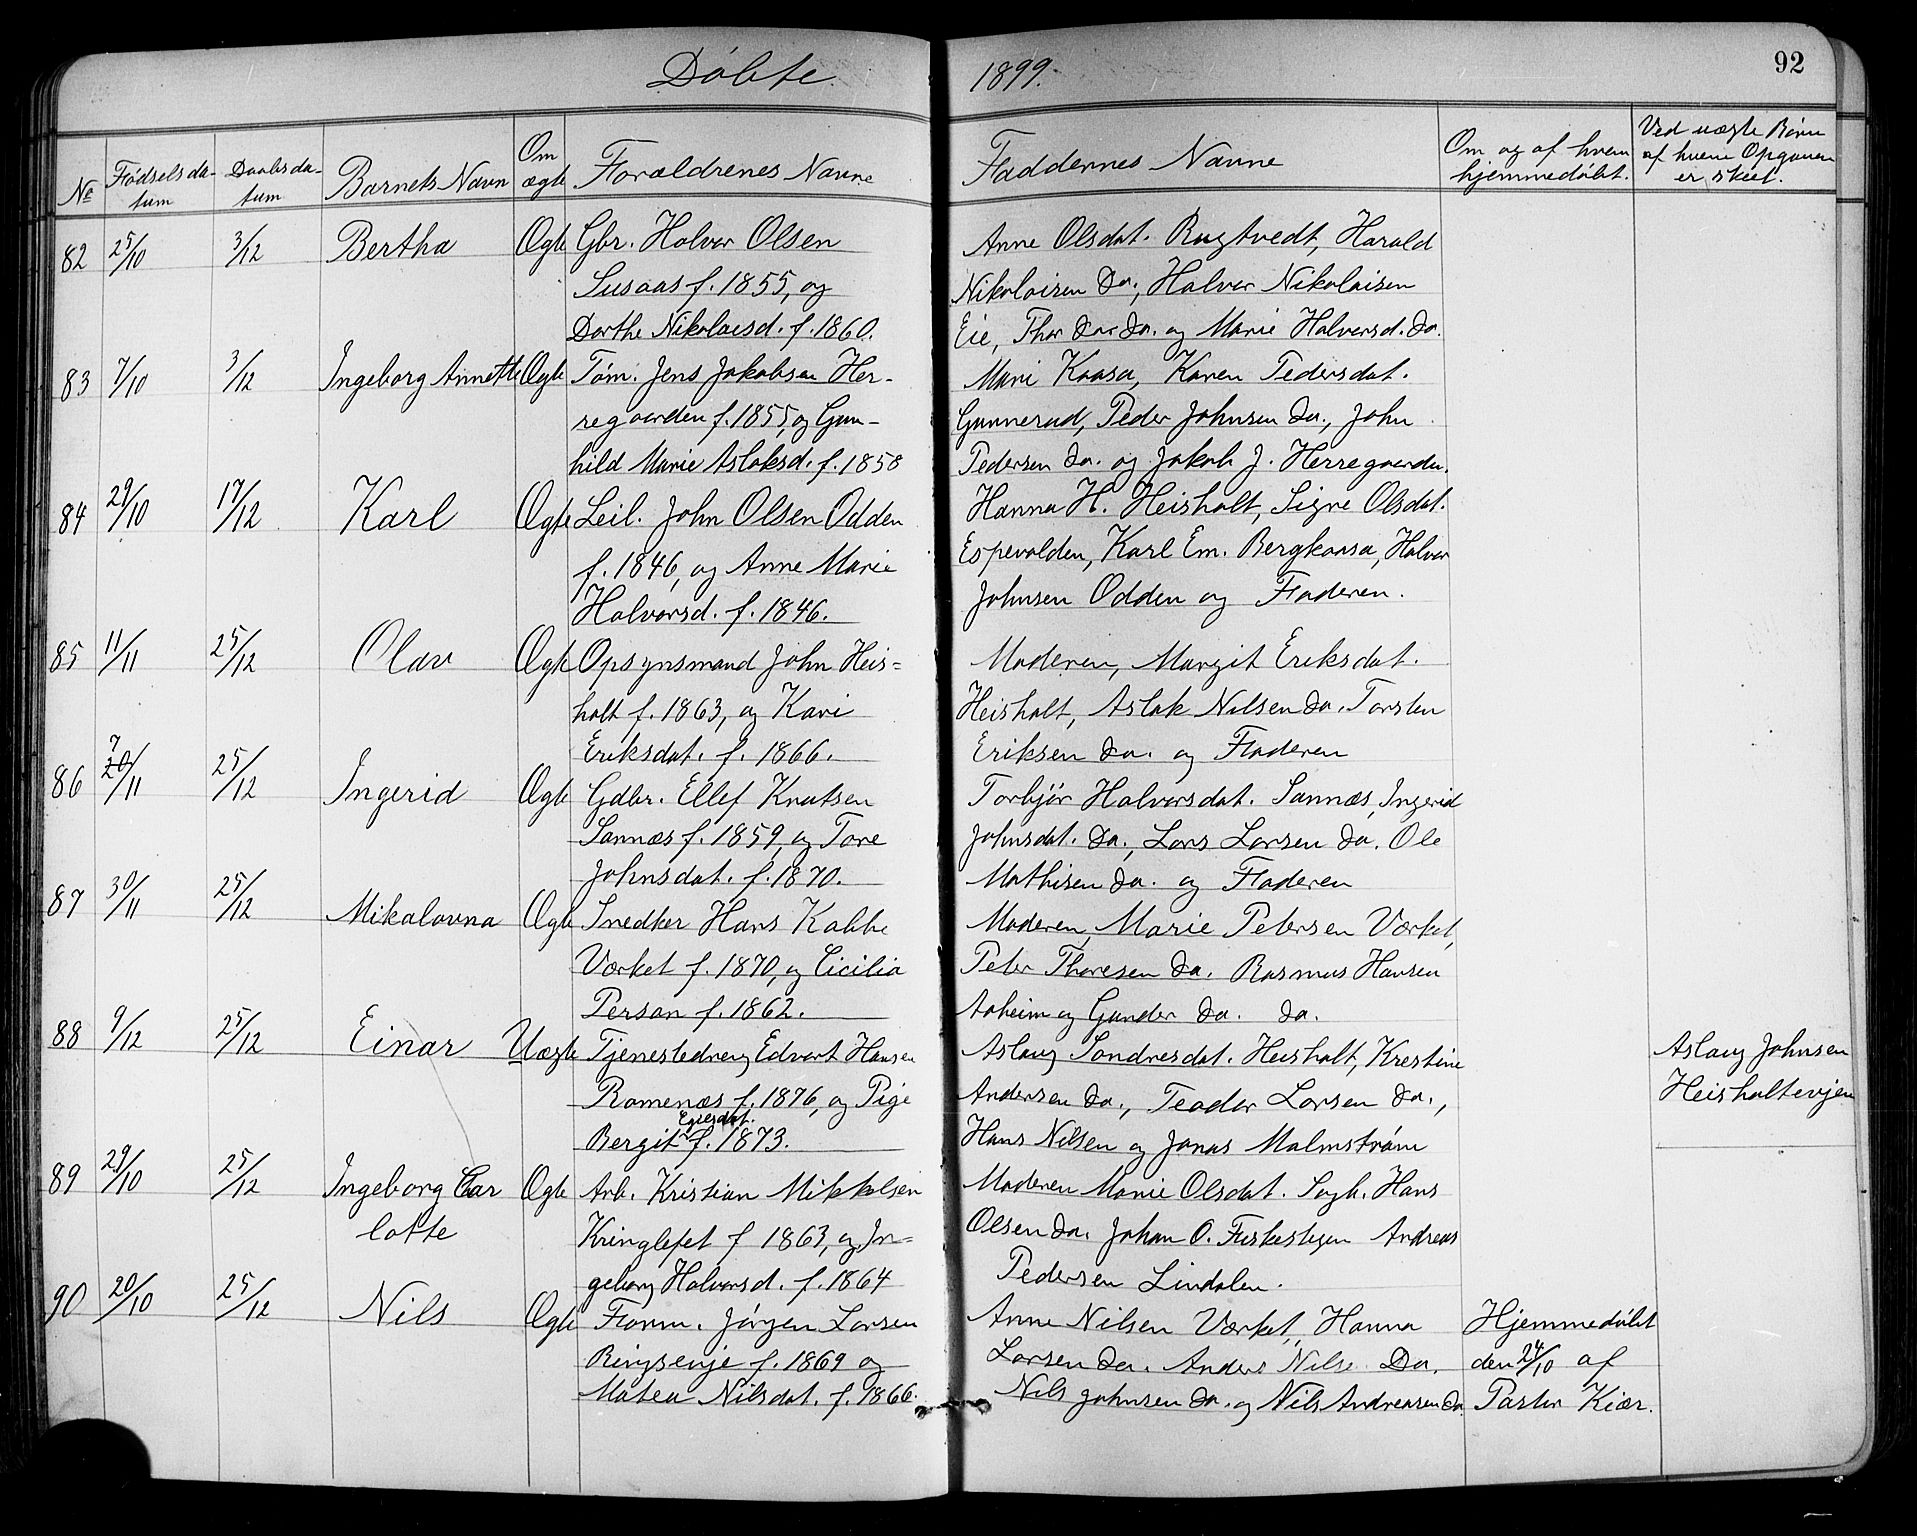 Döbte 1899. 92
No Födselsdatum Daabsdatum Barnets Navn Om ægte Forældrenes Navne Faddernes Navne Om og af hvem hjemmedöbt. Ved uægte Börn af hvem Opgaven er skeet.
82 25/10 3/12 Bertha Ægte Gbr. Halvor Olsen Anne Olsdat. Rugtvedt, Harald
Susaas f. 1855, og Nikolaisen do., Halvor Nikolaisen
Dorthe Nikolaisd. f. 1860. Eie, Thor do. do. og Marie Halvorsd. do.
83 7/10 3/12 Ingeborg Annette Ægte Töm. Jens Jakobsen Her- Mari Kaasa, Karen Pedersdat.
regaarden f. 1855, og Gun- Gunnerud, Peder Johnsen do., John
hild Marie Aslaksd. f. 1858 Pedersen do. og Jakob J. Herregaarden.
84 29/10 17/12 Karl Ægte Leil. John Olsen Odden Hanna H. Heisholt, Signe Olsdat.
f. 1846, og Anne Marie Espevalden, Karl Em. Bergkaasa, Halvor
Halvorsd. f. 1846. Johnsen Odden og Faderen.
85 11/11 25/12 Olav Ægte Opsynsmand John Heis- Moderen, Margit Eriksdat.
holt f. 1863, og Kari Heisholt, Aslak Nilsen do. Torsten
Eriksdat. f. 1866. Eriksen do. og Faderen
86 7/11 25/12 Ingerid Ægte Gdbr. Ellef Knutsen Torbjör Halvorsdat. Sannæs, Ingerid
Sannæs f. 1859, og Tore Johnsdat. do., Lars Larsen do. Ole
Johnsdat. f. 1870. Mathisen do. og Faderen
87 30/11 25/12 Mikalovna Ægte Snedker Hans Kabbe Moderen, Marie Petersen Værket,
Værket f. 1870, og Cicilia Peter Thoresen do. Rasmus Hansen
Person f. 1862. Aaheim og Gunder do. do.
88 9/12 25/12 Einar Uægte Tjenestedreng Edvart Hansen Aslaug Sondresdat. Heisholt, Krestine Aslaug Johnsen
Romenæs f. 1876, og Pige Andersen do., Teodor Larsen do., Heisholtevjen
Bergit Egilsdat. f. 1873. Hans Nilsen og Jonas Malmström
89 29/10 25/12 Ingeborg Car Ægte Arb. Kristian Mikkelsen Moderen Marie Olsdat. Sagh. Hans
lotte Kringlefet f 1863, og In- Olsen do. Johan O. Fuskestigen Andreas
geborg Halvorsd. f. 1864 Pedersen Lindalen.
90 20/10 25/12 Nils Ægte Form. Jörgen Larsen Anne Nilsen Værket, Hanna Hjemmedöbt
Ringsevje f. 1869 og Larsen do. Anders Nilse Do. den 24/10 af
Matea Nilsdat. f. 1866. Nils Johnsen do. og Nils Andreasen do. Pastor Kiær.